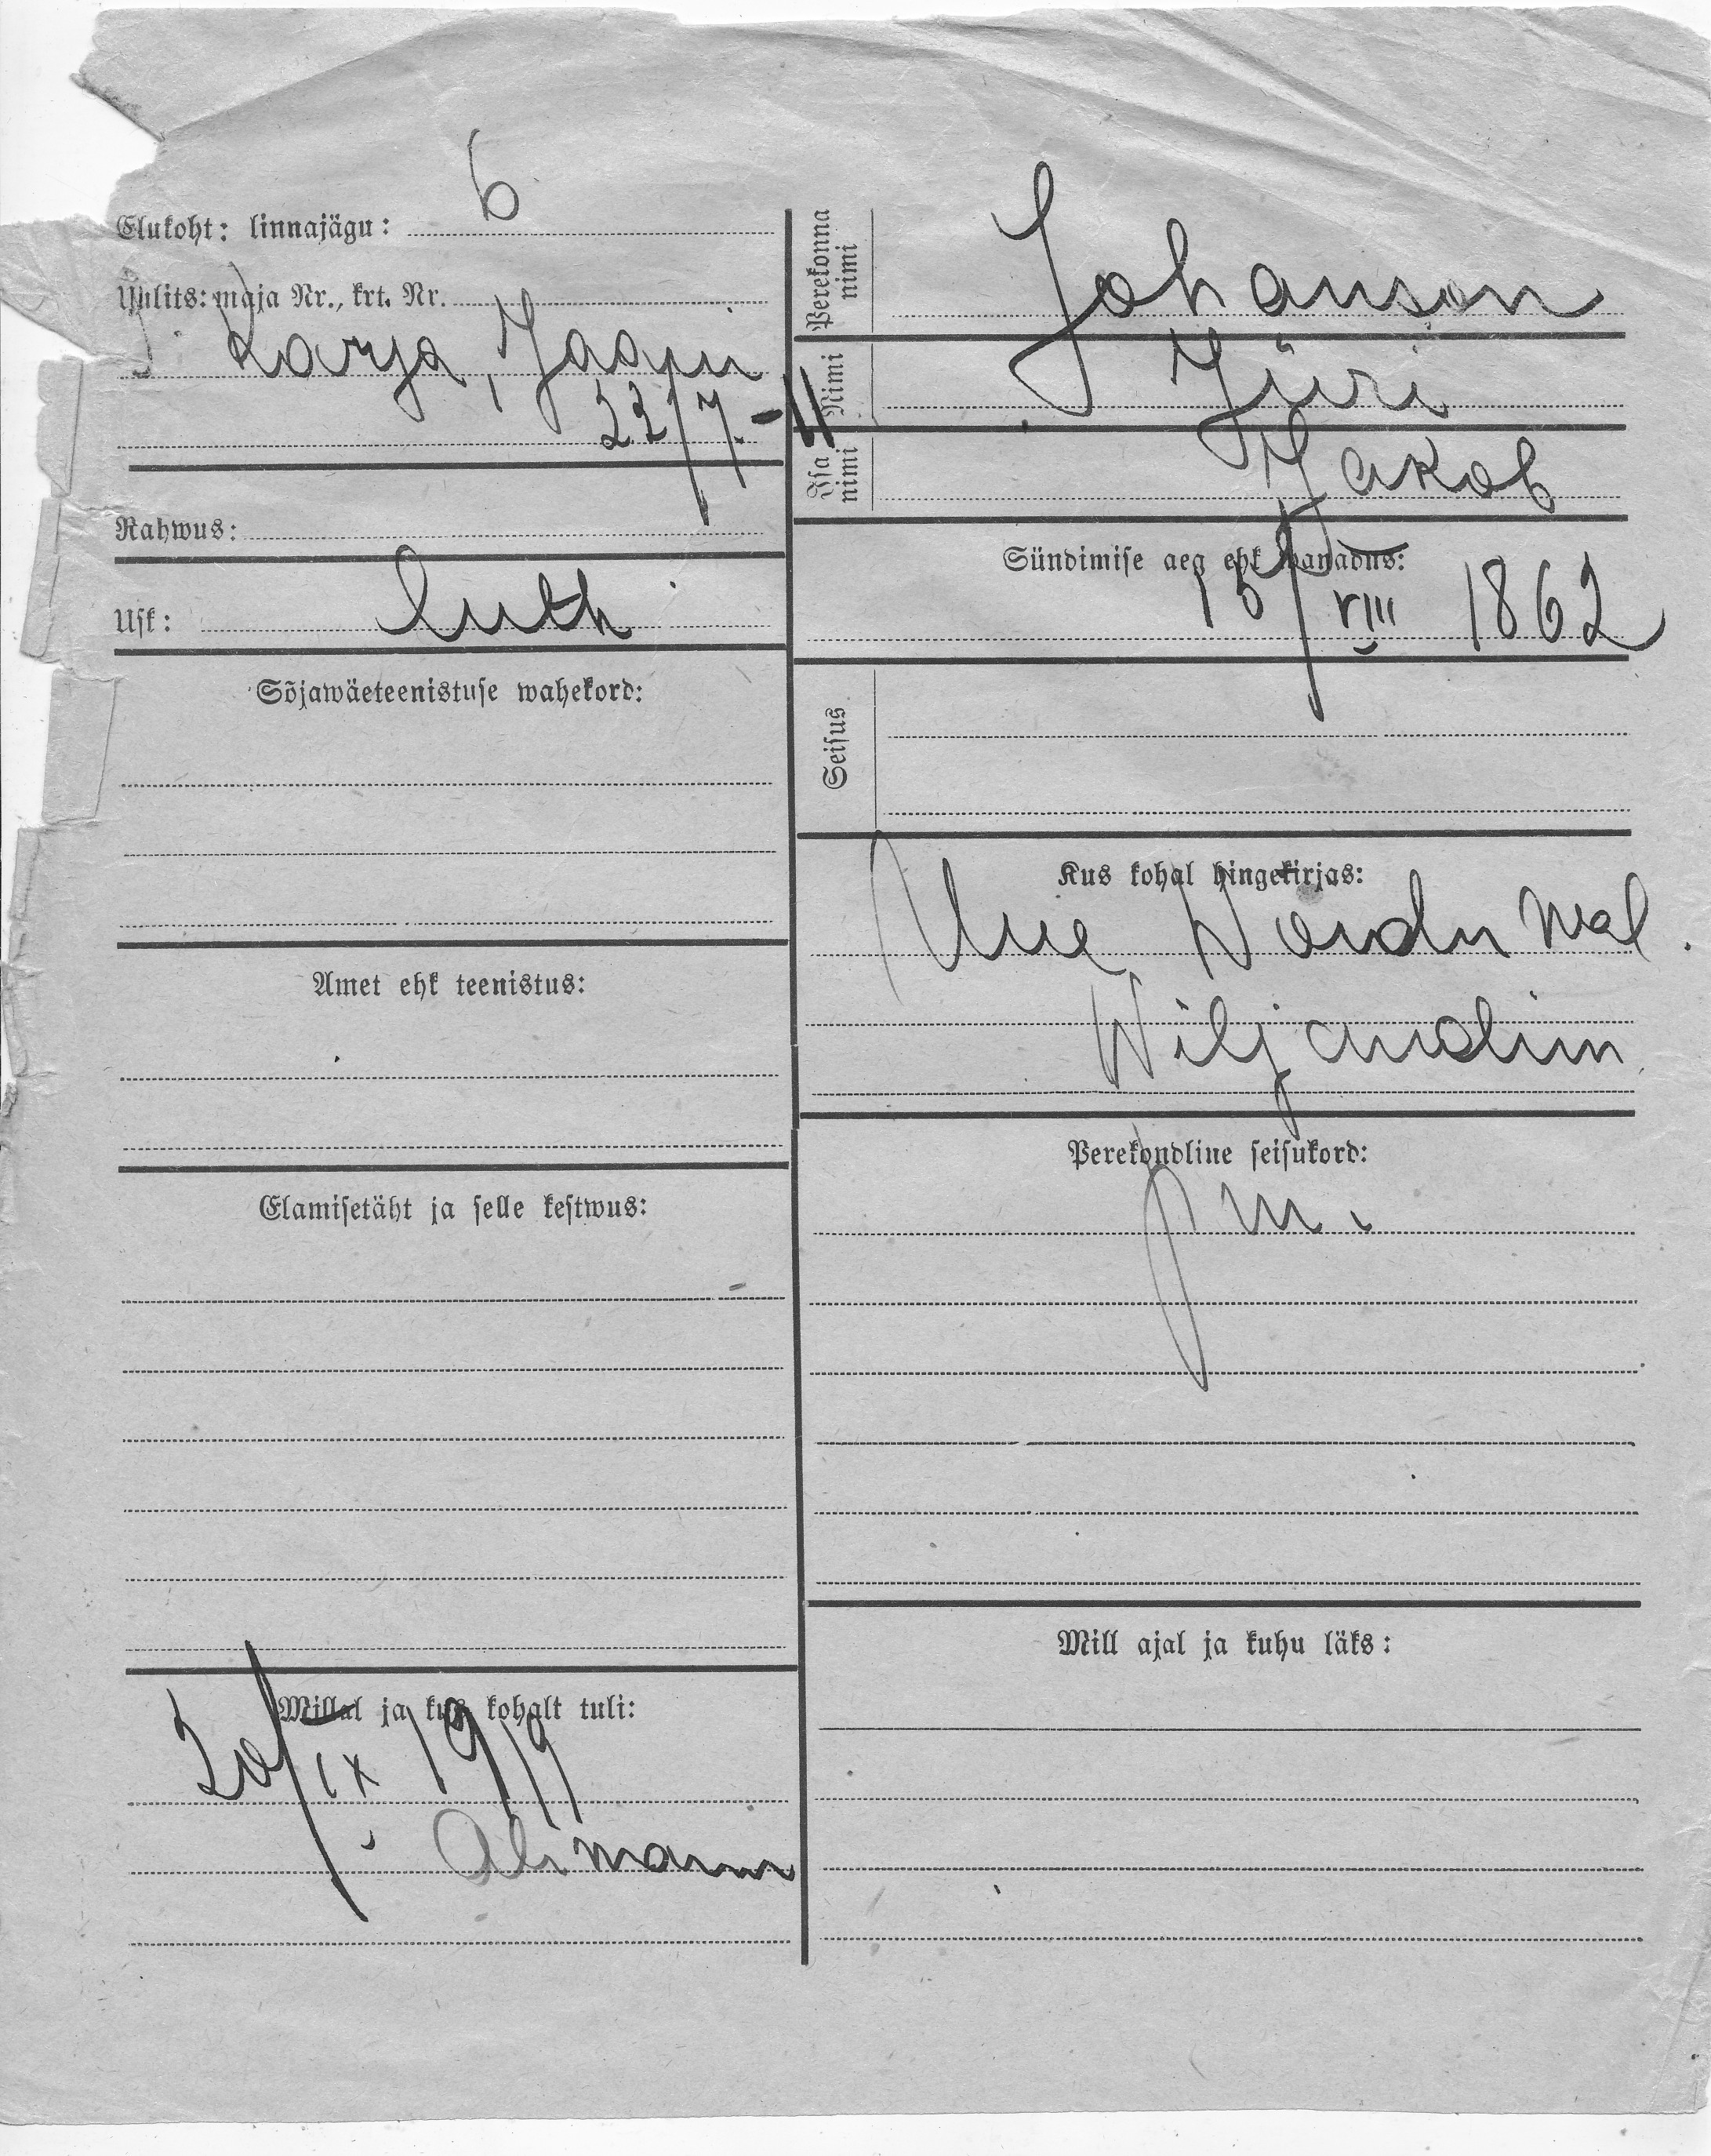 6
Elukoht: linnajägu:
Uulits: maja Nr., krt. Nr.
Karja, Jaani
22/7-11
Rahwus:
Usk: luth
Sõjawäeteenistuse wahekord:
Amet ehk teenistus:
Elamisetäht ja selle kestwus:
Millal ja kus kohalt tuli:
20/IX 1919
Perekonna nimi Johanson
Nimi Jüri
Isa nimi Jakob
Sündimise aeg ehk wanadus:
15/VIII 1862
Seisus
Kus kohal hingekirjas:
Uue Woidu wal.
Wiljandim
Perekondline seisukord:
Mill ajal ja kuhu läks: